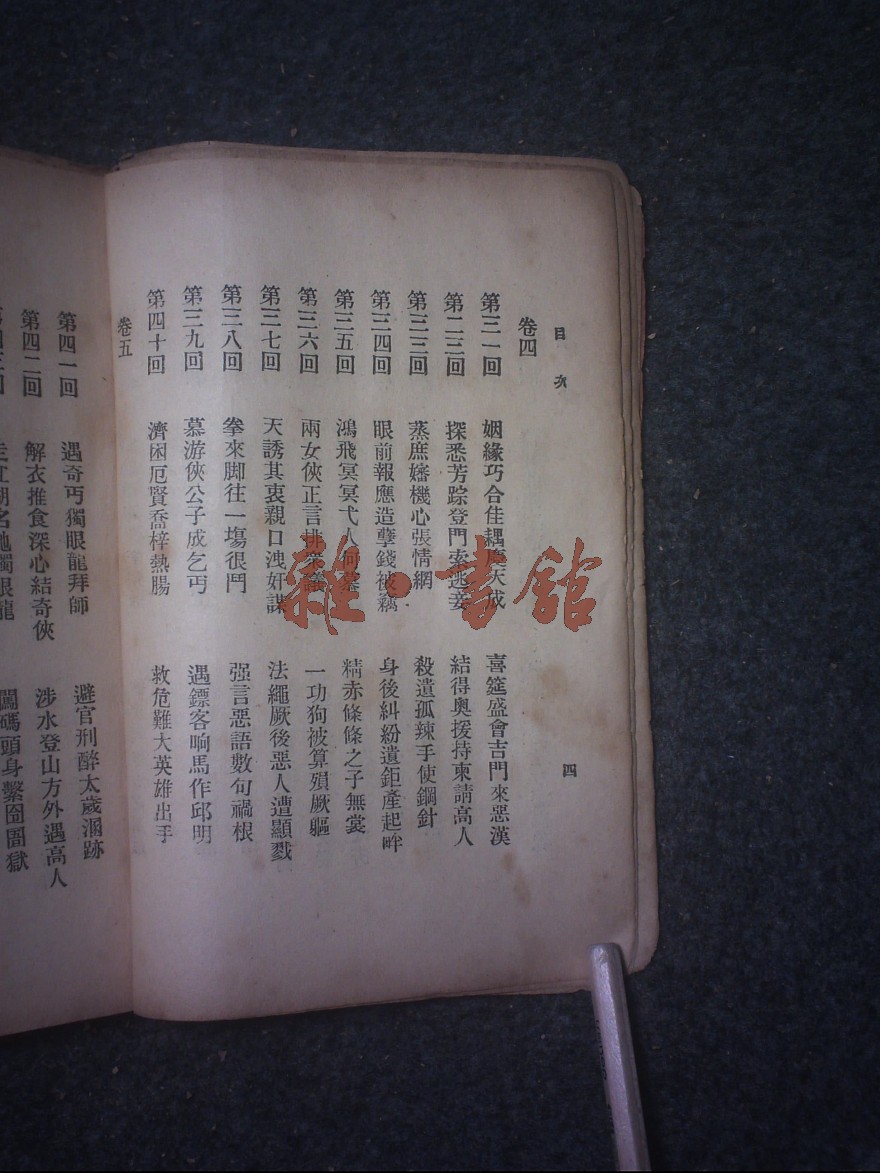 目次
四
卷四
第三一回 姻緣巧合佳耦天成 喜筵盛會吉門來惡漢
第三二回 探悉芳踪登門索逃妾 結得奥援持柬請高人
第三三回 蒸庶嬸機心張情網 殺遺孤辣手使鋼針
第三四回 眼前報應造孽錢被竊 身後糾紛遺鉅產起畔
第三五回 鴻飛冥冥弋人何慕 精赤條條之子無裳
第三六回 兩女俠正言排衆議 一功狗被算殞厥軀
第三七回 天誘其衷親口洩奸謀 法繩厥後惡人遭顯戮
第三八回 拳來脚往一塲很鬥 强言惡語數句禍根
第三九回 慕游俠公子成乞丐 遇鏢客响馬作邱明
第四十回 濟困厄賢喬梓熱腸 救危難大英雄出手
卷五
第四一回 遇奇丐獨眼龍拜師 避官刑醉太歲溷跡
第四二回 解衣推食深心結奇俠 涉水登山方外遇高人
走江湖名馳獨眼龍 闖碼頭身繫囹圄獄
雜·書館